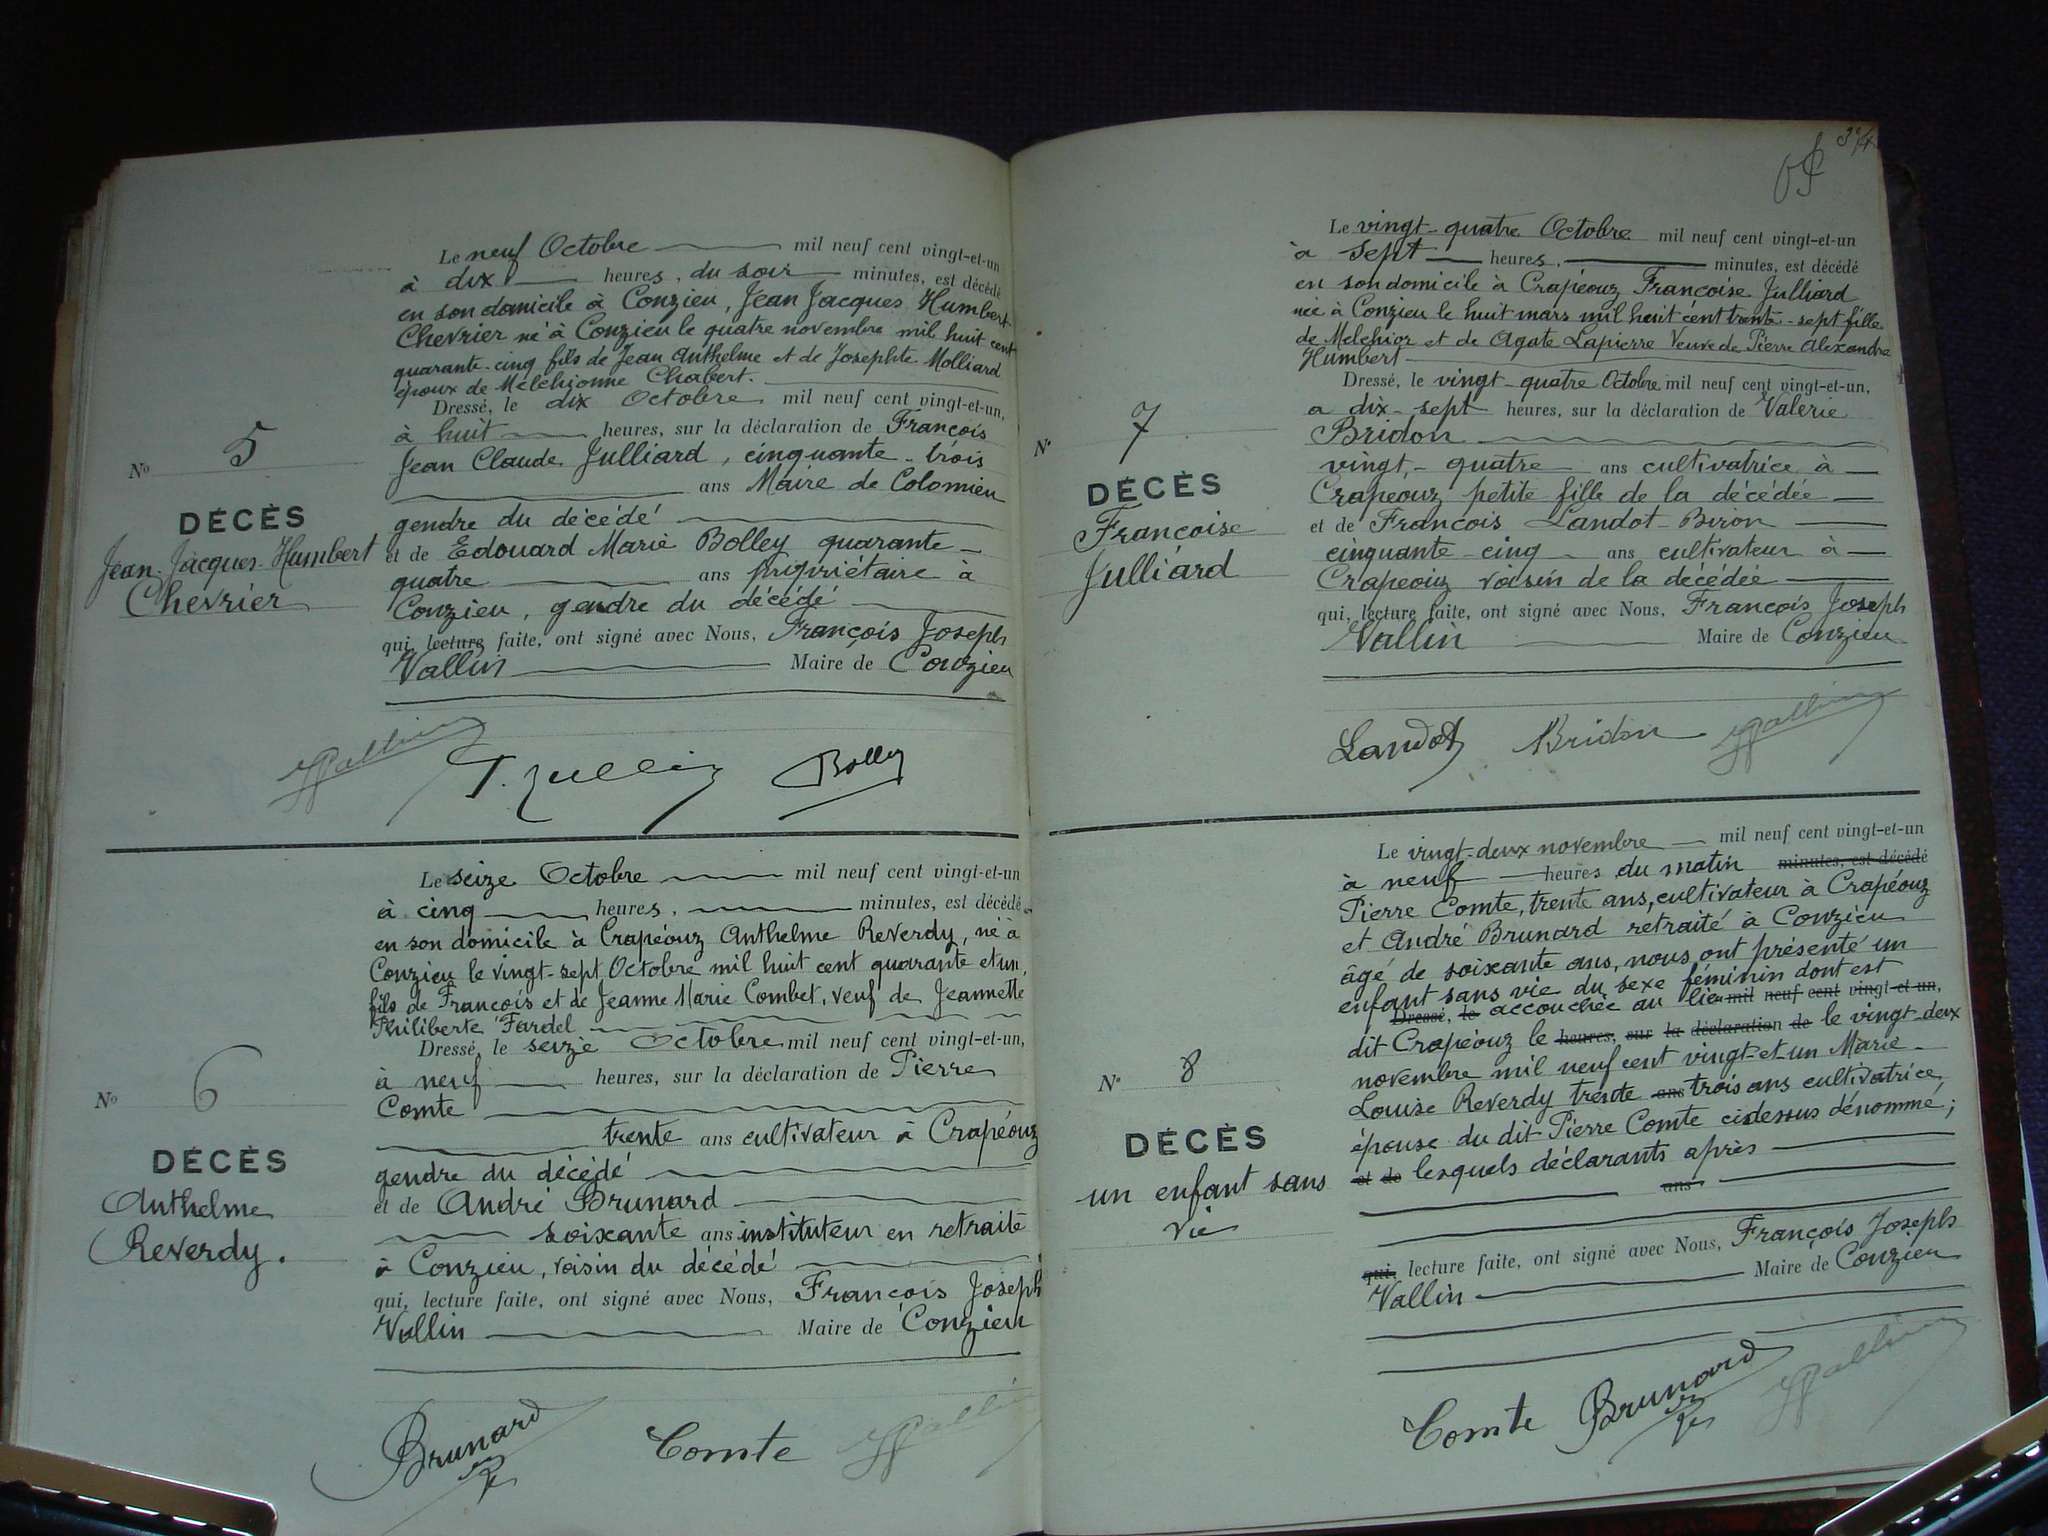 Le neuf Octobre mil neuf cent vingt-et-un
à dix heures, du soir minutes, est décédé
en son domicile à Conzieu, Jean Jacques Humbert-
Chevrier né à Conzieu le quatre novembre mil huit cent
quarante-cinq fils de Jean Anthelme et de Josephte Molliard
époux de Melchionne Chabert.
Dressé, le dix Octobre mil neuf cent vingt-et-un,
à huit heures, sur la déclaration de François
Jean Claude Julliard, cinquante-trois
ans Maire de Colomieu
gendre du décédé
et de Edouard Marie Bolley quarante-
quatre ans propriétaire à
Conzieu, gendre du décédé
qui, lecture faite, ont signé avec Nous, François Joseph
Vallin Maire de Conzieu
N° 5
DÉCÈS
Jean-Jacques-Humbert
Chevrier
Vallin Bolley
Le seize Octobre mil neuf cent vingt-et-un
à cinq heures, minutes, est décédé
en son domicile à Crapéouz Anthelme Reverdy, né à
Conzieu le vingt-sept Octobre mil huit cent quarante et un,
fils de François et de Jeanne Marie Combet, veuf de Jeannette
Philiberte Fardel
Dressé, le seize Octobre mil neuf cent vingt-et-un,
à neuf heures, sur la déclaration de Pierre
Comte
trente ans cultivateur à Crapéouz
gendre du décédé
et de André Brunard
soixante ans instituteur en retraite
à Conzieu, voisin du décédé
qui, lecture faite, ont signé avec Nous, François Joseph
Vallin Maire de Conzieu
N° 6
DÉCÈS
Anthelme
Reverdy.
Brunard Comte Vallin
3/4
Le vingt-quatre Octobre mil neuf cent vingt-et-un
à sept heures, minutes, est décédé
en son domicile à Crapéouz Françoise Julliard
née à Conzieu le huit mars mil huit cent trente-sept fille
de Melchior et de Agate Lapierre Veuve de Pierre Alexandre
Humbert
Dressé, le vingt-quatre Octobre mil neuf cent vingt-et-un,
a dix-sept heures, sur la déclaration de Valérie
Bridon
vingt-quatre ans cultivatrice à
Crapéouz petite fille de la décédée
et de François Landot-Biron
cinquante-cinq ans cultivateur à
Crapeouz voisin de la décédée
qui, lecture faite, ont signé avec Nous, François Joseph
Vallin Maire de Conzieu
N° 7
DÉCÈS
Françoise
Julliard
Landot Bridon Vallin
Le vingt-deux novembre mil neuf cent vingt-et-un
à neuf heures du matin minutes, est décédé
Pierre Comte, trente ans, cultivateur à Crapéouz
et André Brunard retraité à Conzieu
âgé de soixante ans, nous ont présenté un
enfant sans vie du sexe féminin dont est
Dressé, le accouchée au lieu mil neuf cent vingt-et-un,
dit Crapéouz le heures, sur la déclaration de le vingt-deux
novembre mil neuf cent vingt-et-un Marie-
Louise Reverdy trente ans trois ans cultivatrice,
épouse du dit Pierre Comte cidessus dénommé;
et de lesquels déclarants après
ans
qui, lecture faite, ont signé avec Nous, François Joseph
Vallin Maire de Conzieu
N° 8
DÉCÈS
un enfant sans
vie
Comte Brunard Vallin